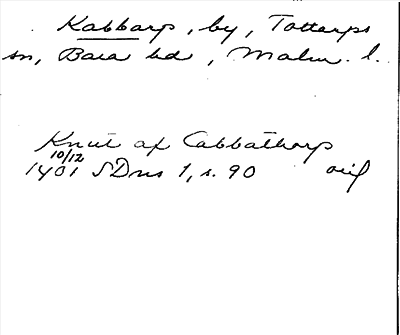 Kabbarp, by, Tottarps
sn, Bara hd, Malm. l.
Knut af Cabbathorp
10/12
1401 SDns 1, s. 90 orig